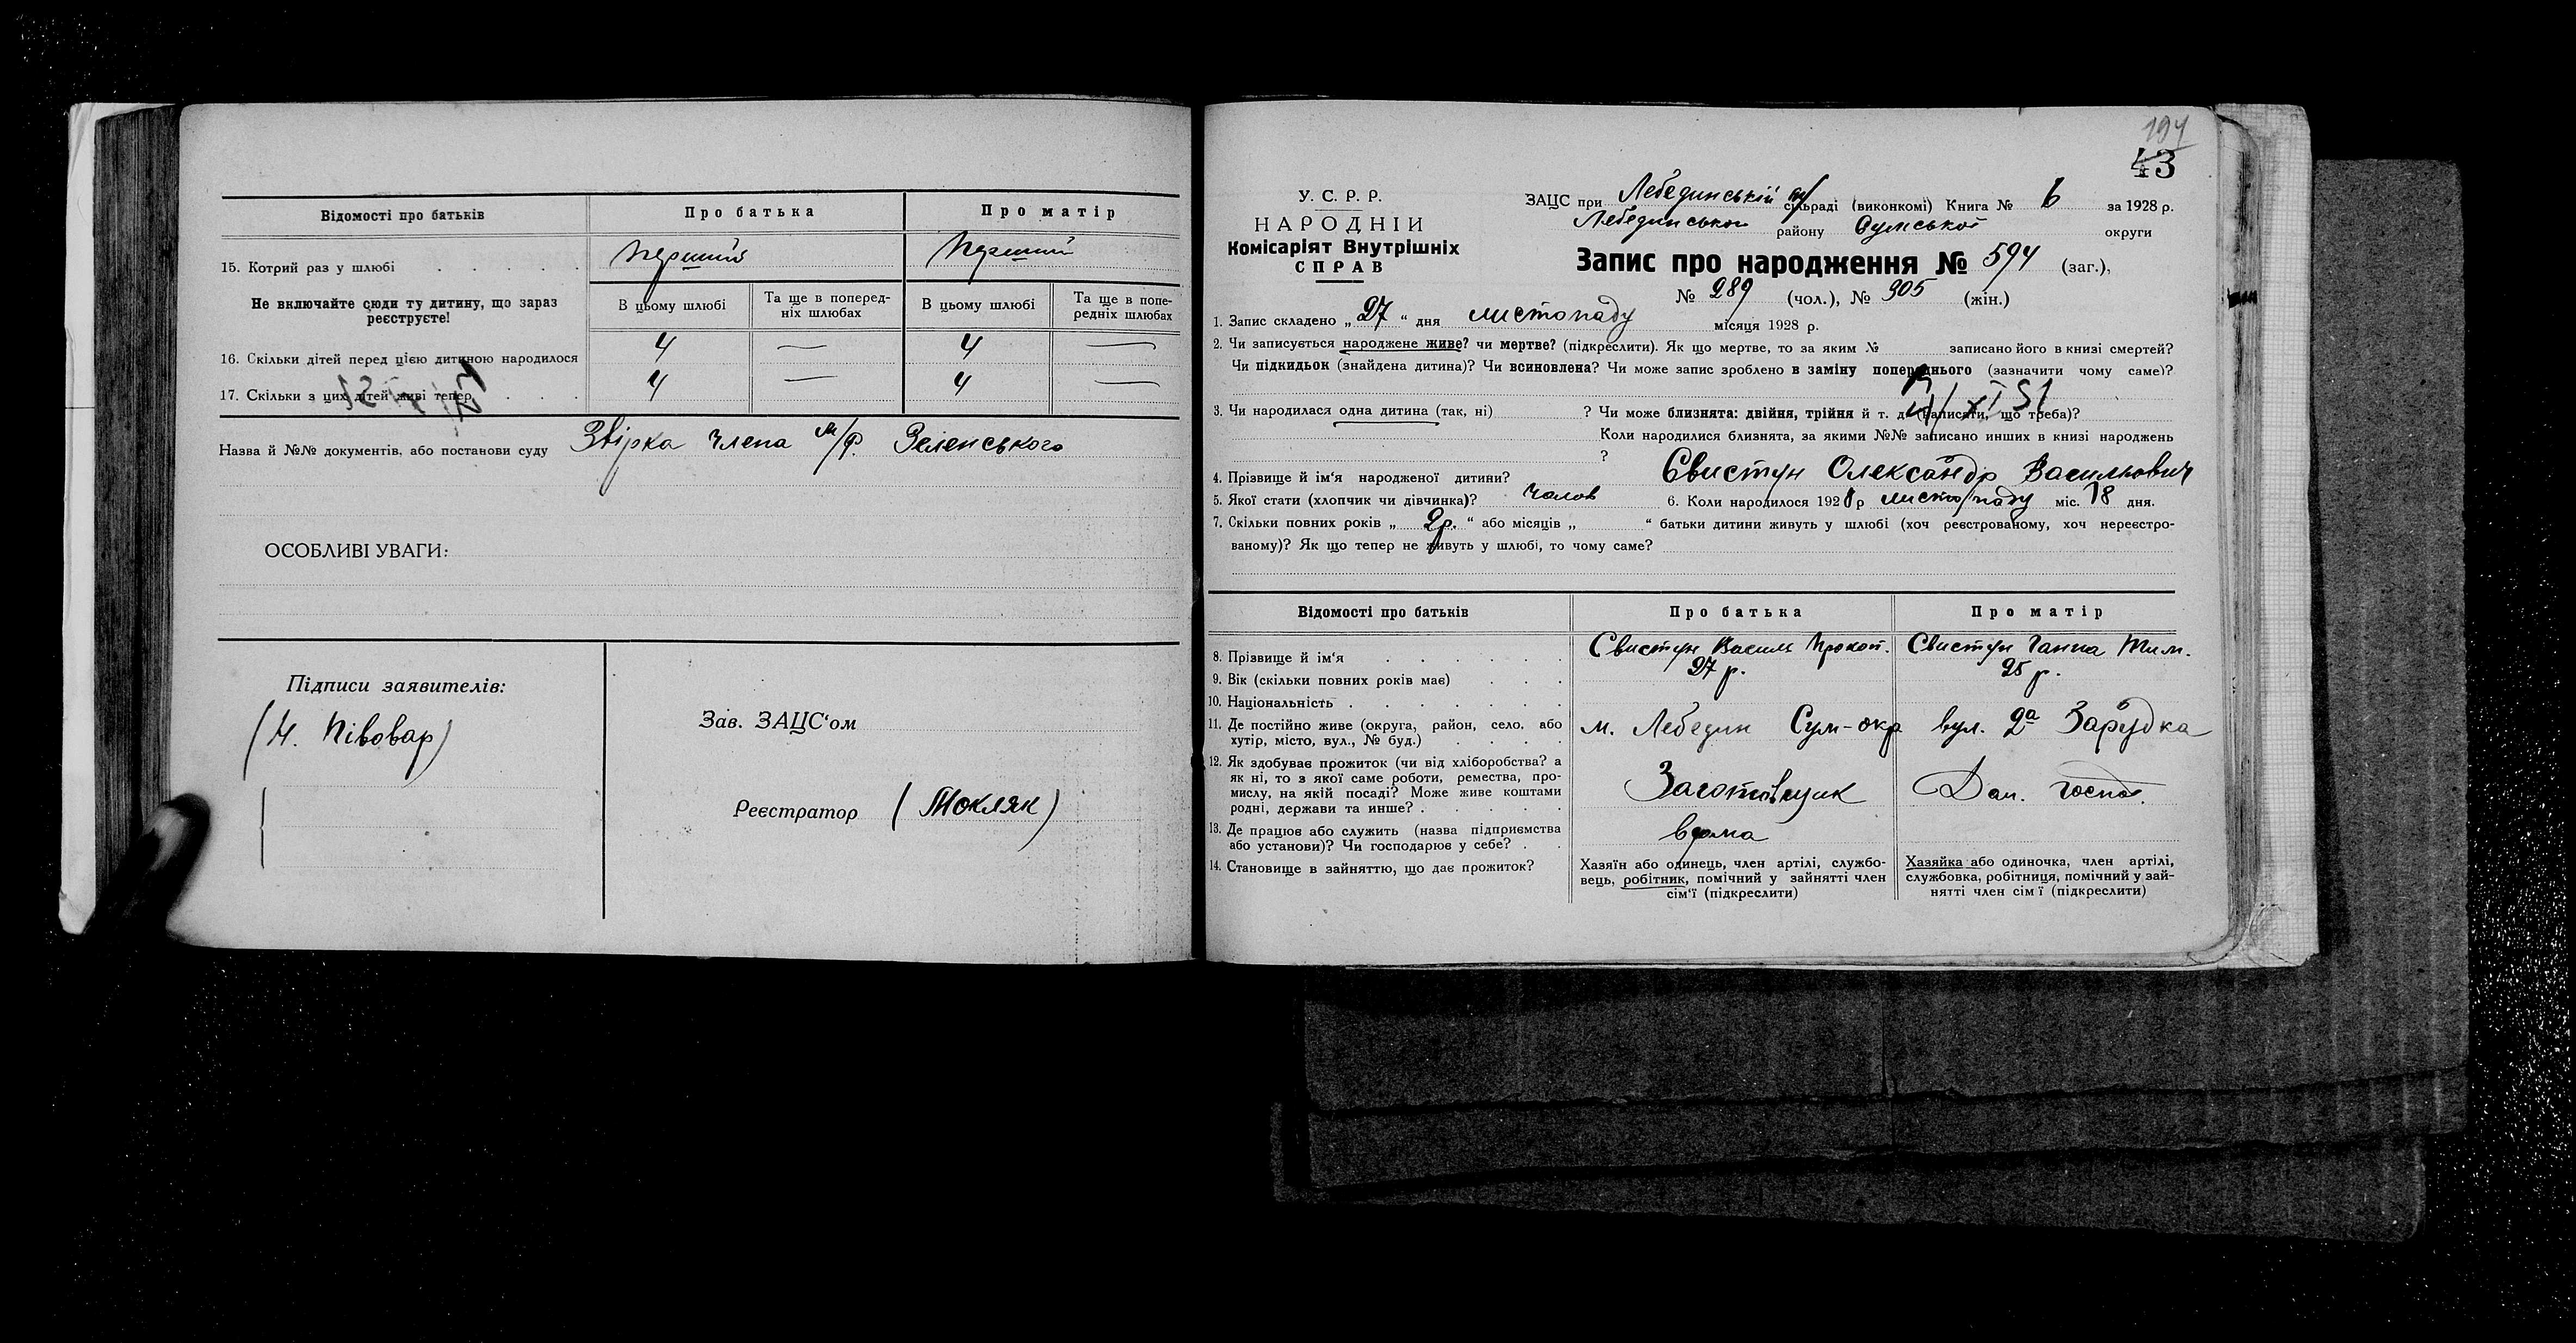 Відомості про батьків
Про батька
Про матір
15. Котрий раз у шлюбі
перший
перший
Не включайте сюди ту дитину, що зараз реєструєте!
В цьому шлюбі
Та ще в поперед-
ніх шлюбах
В цьому шлюбі
Та ще в попе-
редніх шлюбах
16. Скільки дітей перед цією дитиною народилося
4 — 4 —
17. Скільки з цих дітей живі тепер
4 — 4 —
Назва й №№ документів, або постанови суду Звірка члена м/р. Зеленського
ОСОБЛИВІ УВАГИ:
Підписи заявителів:
(Н. Півовар)
Зав. ЗАЦС'ом
Реєстратор (Мокляк)
194
43
У. С. Р. Р.
НАРОДНІЙ
Комісаріят Внутрішніх
СПРАВ
ЗАЦС при Лебединській сільраді (виконкомі) Книга № 6 за 1928 р.
Лебединського району Сумської округи
Запис про народження № 594 (заг.),
№ 289 (чол.), № 305 (жін.)
1. Запис складено „27“ дня листопаду місяця 1928 р.
2. Чи записується народжене живе? чи мертве? (підкреслити). Як що мертве, то за яким № записано його в книзі смертей?
Чи підкидьок (знайдена дитина)? Чи всиновлена? Чи може запис зроблено в заміну попереднього (зазначити чому саме)?
3. Чи народилася одна дитина (так, ні) ? Чи може близнята: двійня, трійня й т. д. (написати, що треба)?
Коли народилися близнята, за якими №№ записано инших в книзі народжень
?
4. Прізвище й ім'я народженої дитини? Свистун Олександр Васильович
5. Якої стати (хлопчик чи дівчинка)? чолов 6. Коли народилося 1928 р листопаду міс. 18 дня.
7. Скільки повних років „ 9р. “ або місяців „ “ батьки дитини живуть у шлюбі (хоч реєстрованому, хоч нереєстро-
ваному)? Як що тепер не живуть у шлюбі, то чому саме?
Відомості про батьків
Про батька
Про матір
8. Прізвище й ім'я
Свистун Василь Прокоп.
Свистун Ганна Тим.
9. Вік (скільки повних років має)
27 р.
25 р.
10. Національність
11. Де постійно живе (округа, район, село, або
хутір, місто, вул., № буд.)
м. Лебедин Сум-окр вул. 2а Зарудка
12. Як здобуває прожиток (чи від хліборобства? а
як ні, то з якої саме роботи, ремества, про-
мислу, на якій посаді? Може живе коштами
родні, держави та инше?
Заготовщик
Дом. госпо.
13. Де працює або служить (назва підприємства
або установи)? Чи господарює у себе?
вдома
14. Становище в зайняттю, що дає прожиток?
Хазяїн або одинець, член артілі, службо-
вець, робітник, помічний у зайнятті член
сім'ї (підкреслити)
Хазяйка або одиночка, член артілі,
службовка, робітниця, помічний у зай-
нятті член сім'ї (підкреслити)